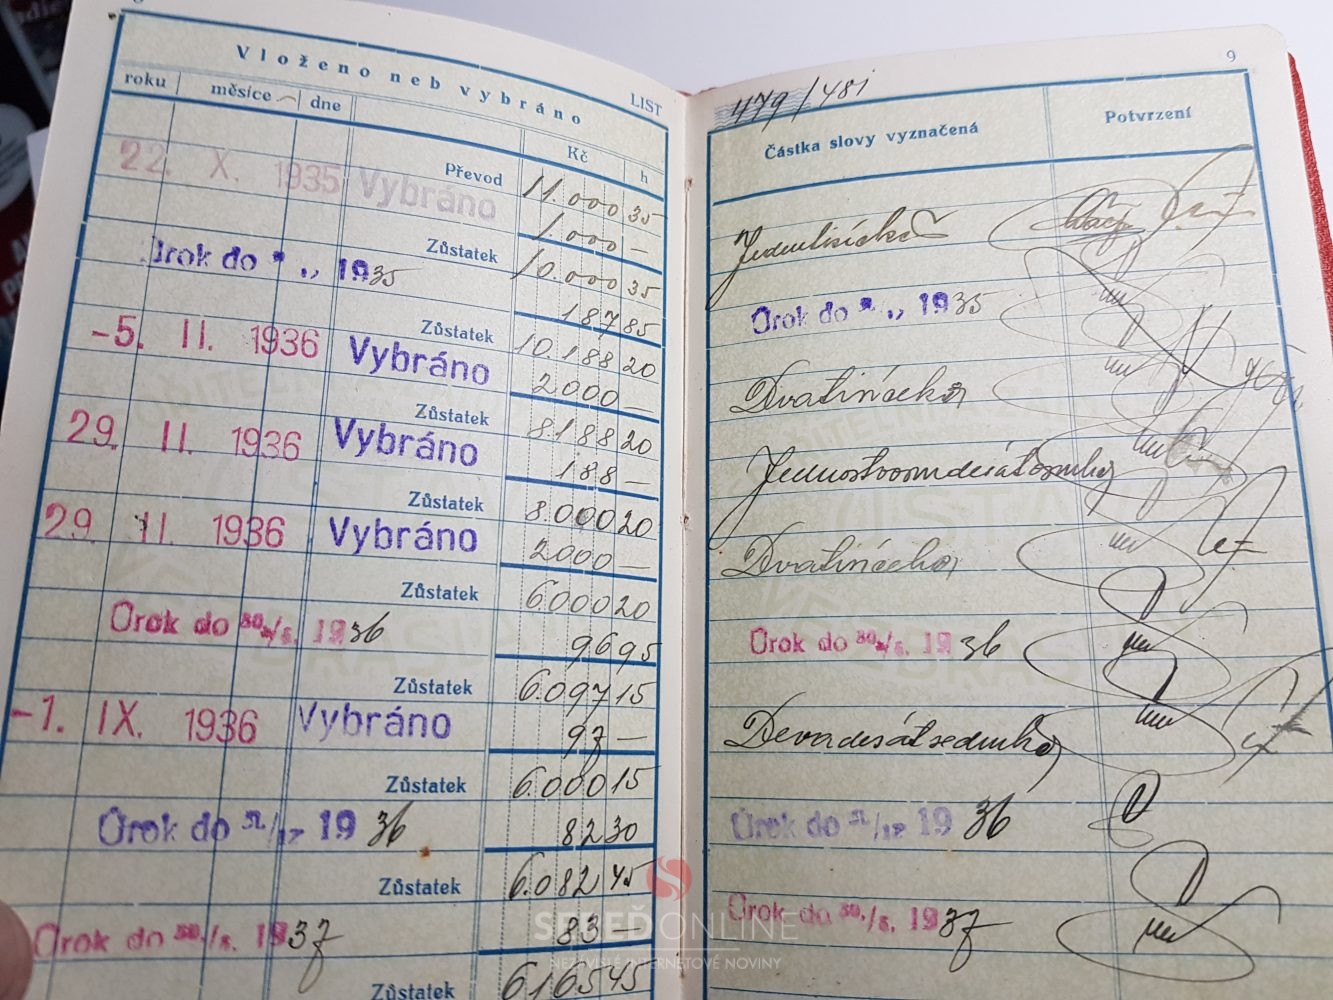 Vloženo neb vybráno
LIST
roku měsíce dne
Kč h
Převod 11.000 35
22. X. 1935 Vybráno 1.000 —
Zůstatek 10.000 35
Úrok do 1935 187 85
Zůstatek 10.188 20
-5. II. 1936 Vybráno 2000 —
Zůstatek 8.188 20
29. II. 1936 Vybráno 188 —
Zůstatek 8.000 20
29. II. 1936 Vybráno 2000 —
Zůstatek 6000 20
Úrok do 30./6. 1936 96 95
Zůstatek 6.097 15
-1. IX. 1936 Vybráno 97 —
Zůstatek 6.000 15
Úrok do 31/12 1936 82 30
Zůstatek 6.082 45
Úrok do 30./6. 1937 83 —
Zůstatek 6165 45
9
479/481
Částka slovy vyznačená
Potvrzení
Jedentisíc
Úrok do 1935
Dvatisíce
Jednostoosmdesátosm
Dvatisíce
Úrok do 30./6. 1936
Devadesátsedm
Úrok do 31/12 1936
Úrok do 30./6. 1937
SEREĎ ONLINE
NEZÁVISLÉ INTERNETOVÉ NOVINY